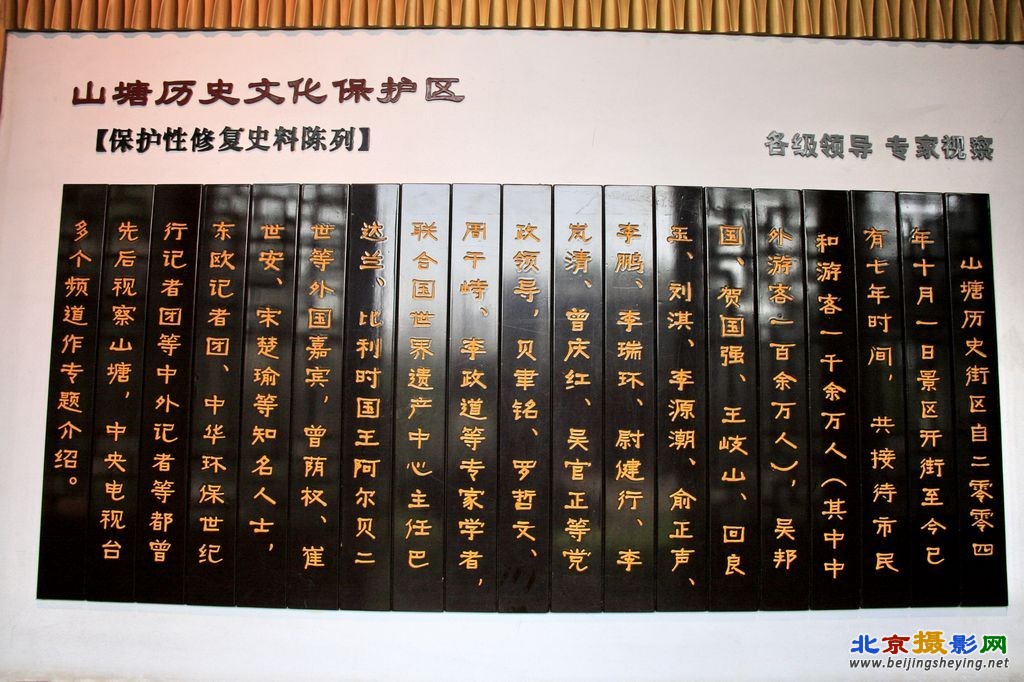 山塘历史文化保护区
【保护性修复史料陈列】
各级领导 专家视察
山塘历史街区自二零零四
年十月一日景区开街至今已
有七年时间，共接待市民
和游客一千余万人（其中中
外游客一百余万人），吴邦
国、贺国强、王岐山、回良
玉、刘淇、李源潮、俞正声、
李鹏、李瑞环、尉健行、李
岚清、曾庆红、吴官正等党
政领导，贝聿铭、罗哲文、
周干峙、李政道等专家学者，
联合国世界遗产中心主任巴
达兰、比利时国王阿尔贝二
世等外国嘉宾，曾荫权、崔
世安、宋楚瑜等知名人士，
东欧记者团、中华环保世纪
行记者团等中外记者等都曾
先后视察山塘，中央电视台
多个频道作专题介绍。
北京摄影网
www.beijingsheying.net